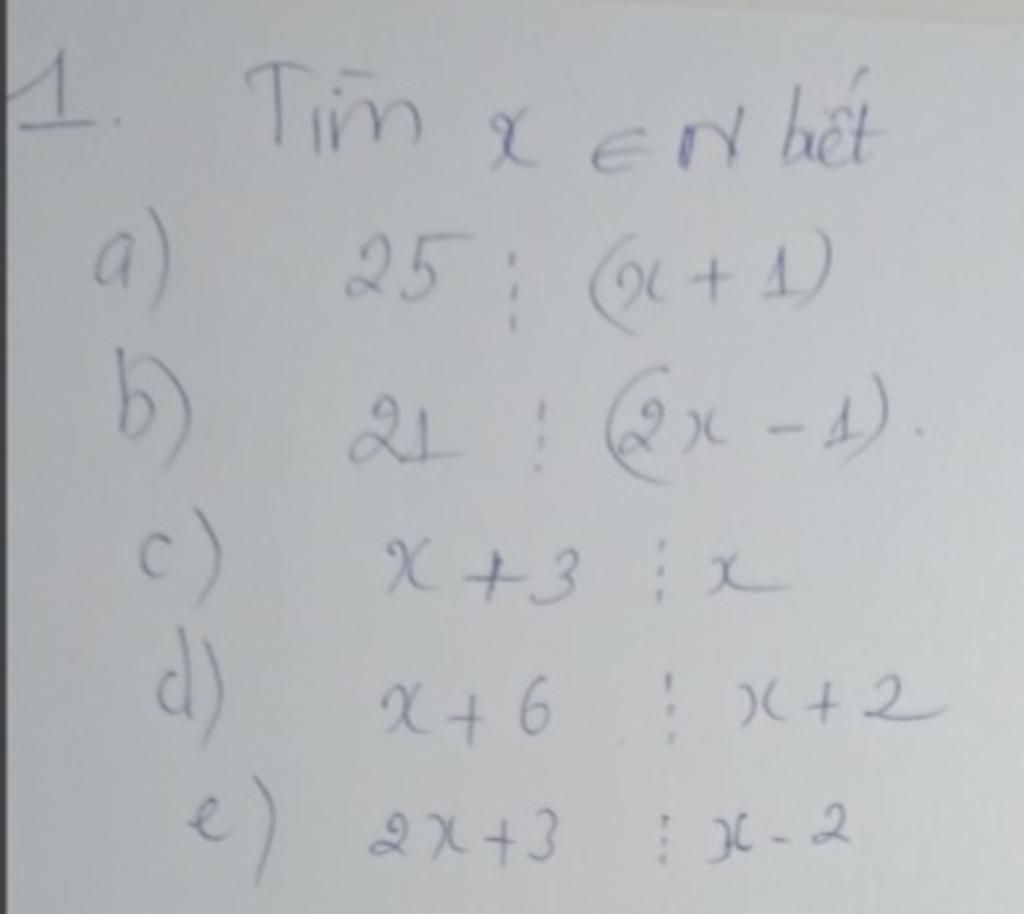 1. Tìm x ∈ N biết
a) 25 ⋮ (x + 1)
b) 21 ⋮ (2x - 1).
c) x + 3 ⋮ x
d) x + 6 ⋮ x + 2
e) 2x + 3 ⋮ x - 2